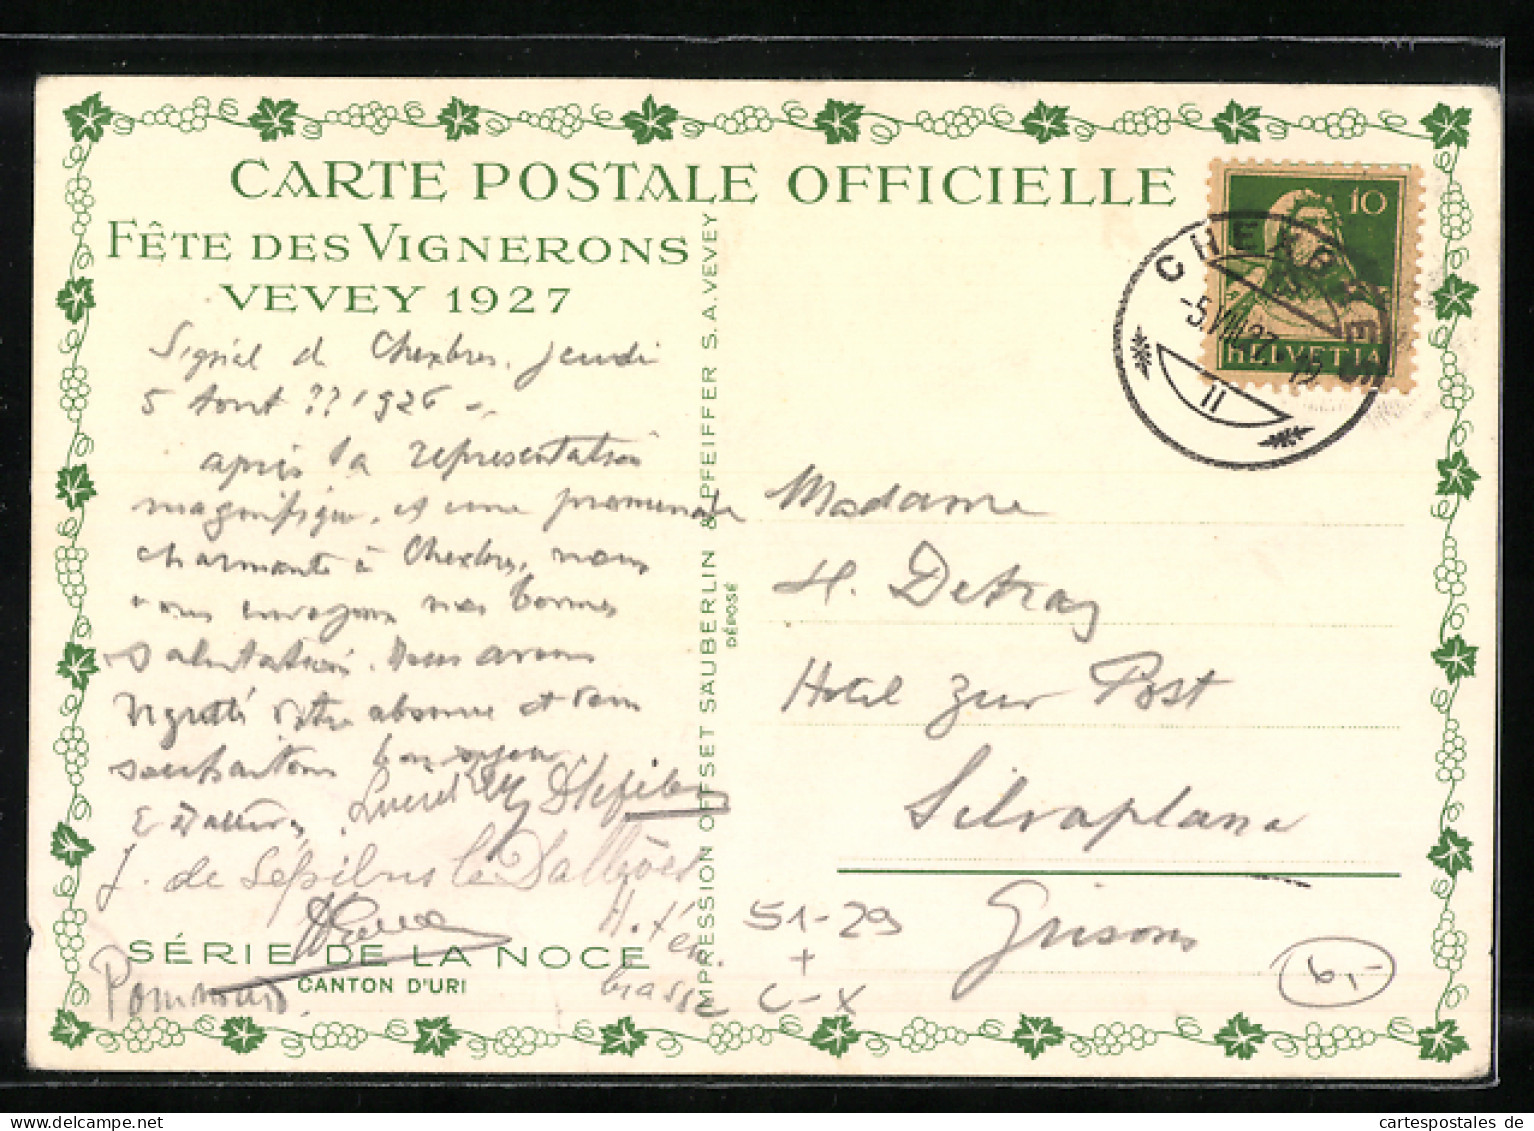 CARTE POSTALE OFFICIELLE
FÊTE DES VIGNERONS
VEVEY 1927
Signal d Chexbres, jeudi
5 Aout ?? 1926
après la représentation
magnifique, et une promenade
charmante à Chexbres, nous
vous envoyons nos bonnes
salutations. Nous avons
regretté votre absence et vous
souhaitons bon séjour.
J. de Sépibus
SÉRIE DE LA NOCE
CANTON D'URI
IMPRESSION OFFSET SAUBERLIN & PFEIFFER S.A. VEVEY
DÉPOSÉ
10
HELVETIA
CHEXBRES
-5.VIII.27. 19
II
Madame
H. Detray
Hotel zur Post
Silvaplana
Grisons
51-29
+
C-X
6,-
cartespostales.de